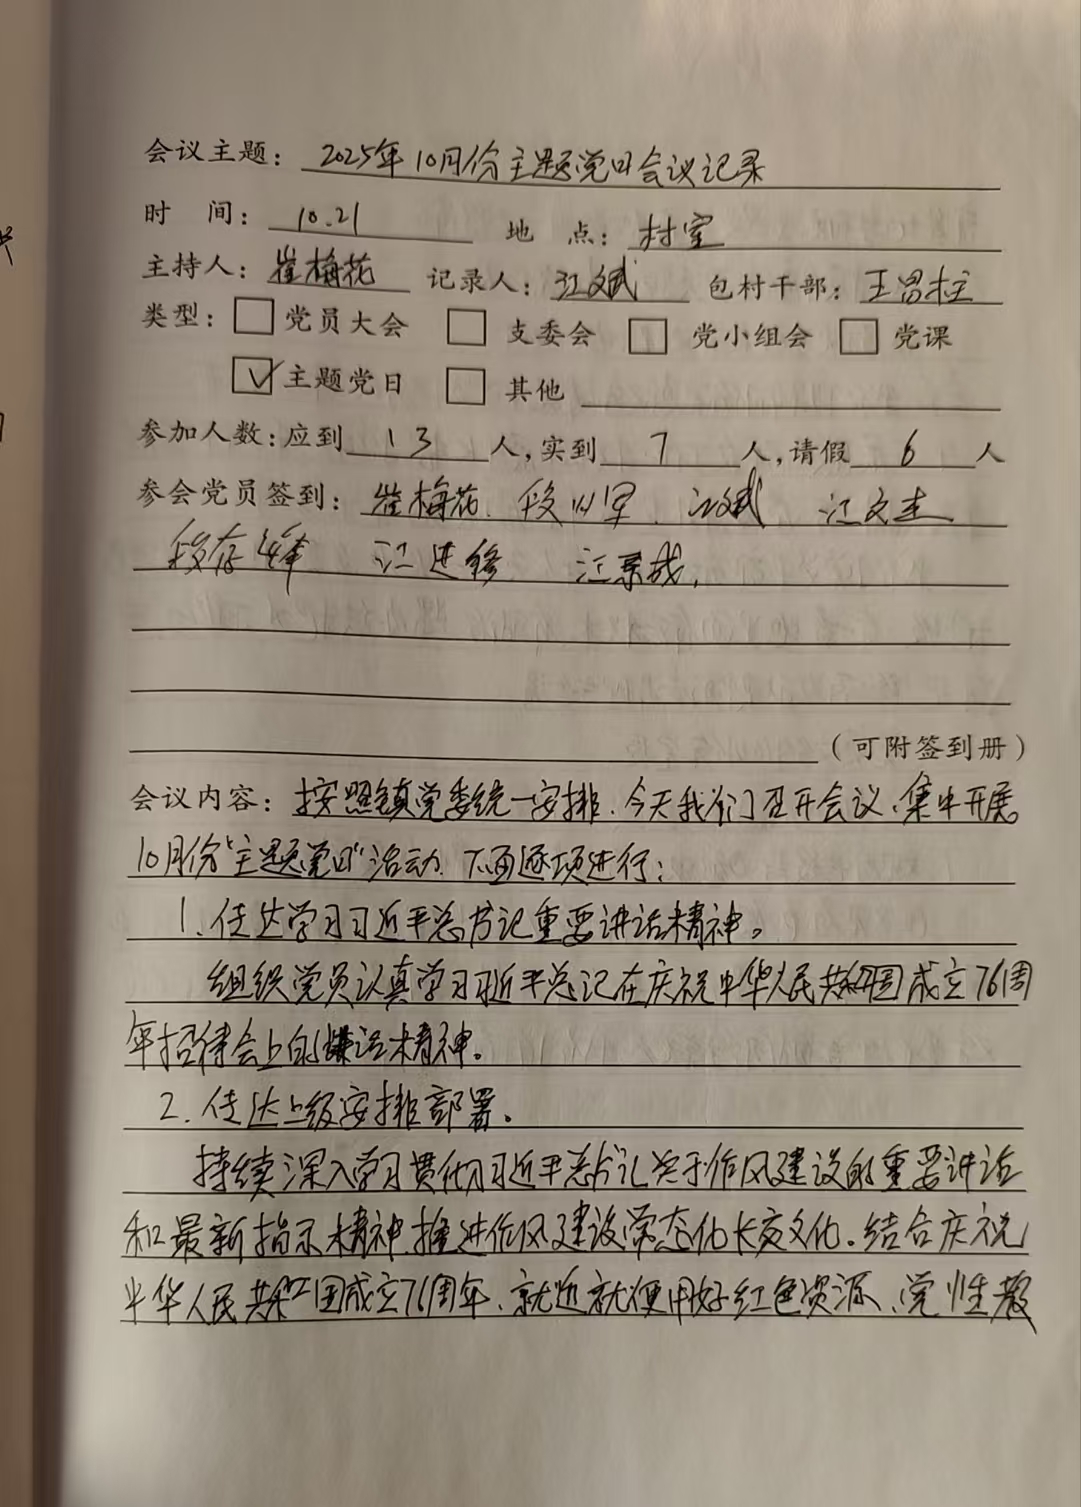 会议主题：2025年10月份主题党日会议记录
时 间：10.21 地 点：村室
主持人：崔梅花 记录人：江斌 包村干部：王 柱
类型：□党员大会 □支委会 □党小组会 □党课
☑主题党日 □其他
参加人数：应到13人，实到7人，请假6人
参会党员签到：崔梅花、段 军、江斌 江文杰
段存锋 江进修 江 成、
（可附签到册）
会议内容：按照镇党委统一安排、今天我们召开会议、集中开展
10月份“主题党日”活动、下面逐项进行：
1、传达学习习近平总书记重要讲话精神。
组织党员认真学习习近平总记在庆祝中华人民共和国成立76周
年招待会上的讲话精神。
2、传达上级安排部署。
持续深入学习贯彻习近平总书记关于作风建设的重要讲话
和最新指示精神推进作风建设常态化长效文化。结合庆祝
中华人民共和国成立76周年、就近就便用好红色资源、党性教